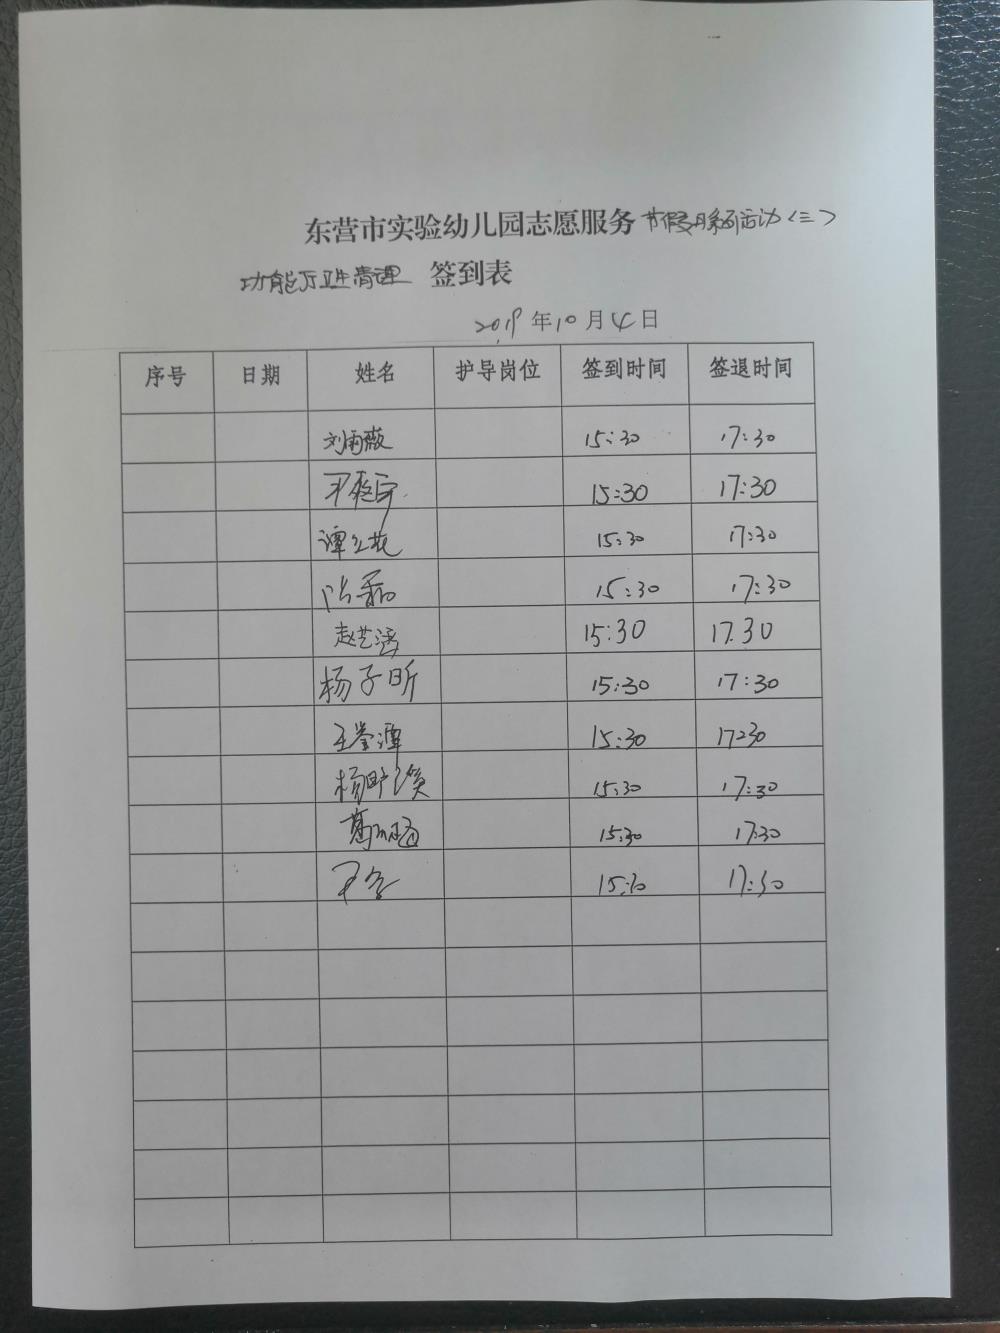 东营市实验幼儿园志愿服务 节假日系列活动（三）
功能厅卫生清理 签到表
2019年10月4日
序号 日期 姓名 护导岗位 签到时间 签退时间
刘雨薇 15:30 17:30
15:30 17:30
谭红花 15:30 17:30
15:30 17:30
赵艺涵 15:30 17.30
杨子昕 15:30 17:30
王 潭 15:30 17:30
杨 15:30 17:30
葛 15:30 17:30
15:30 17:30